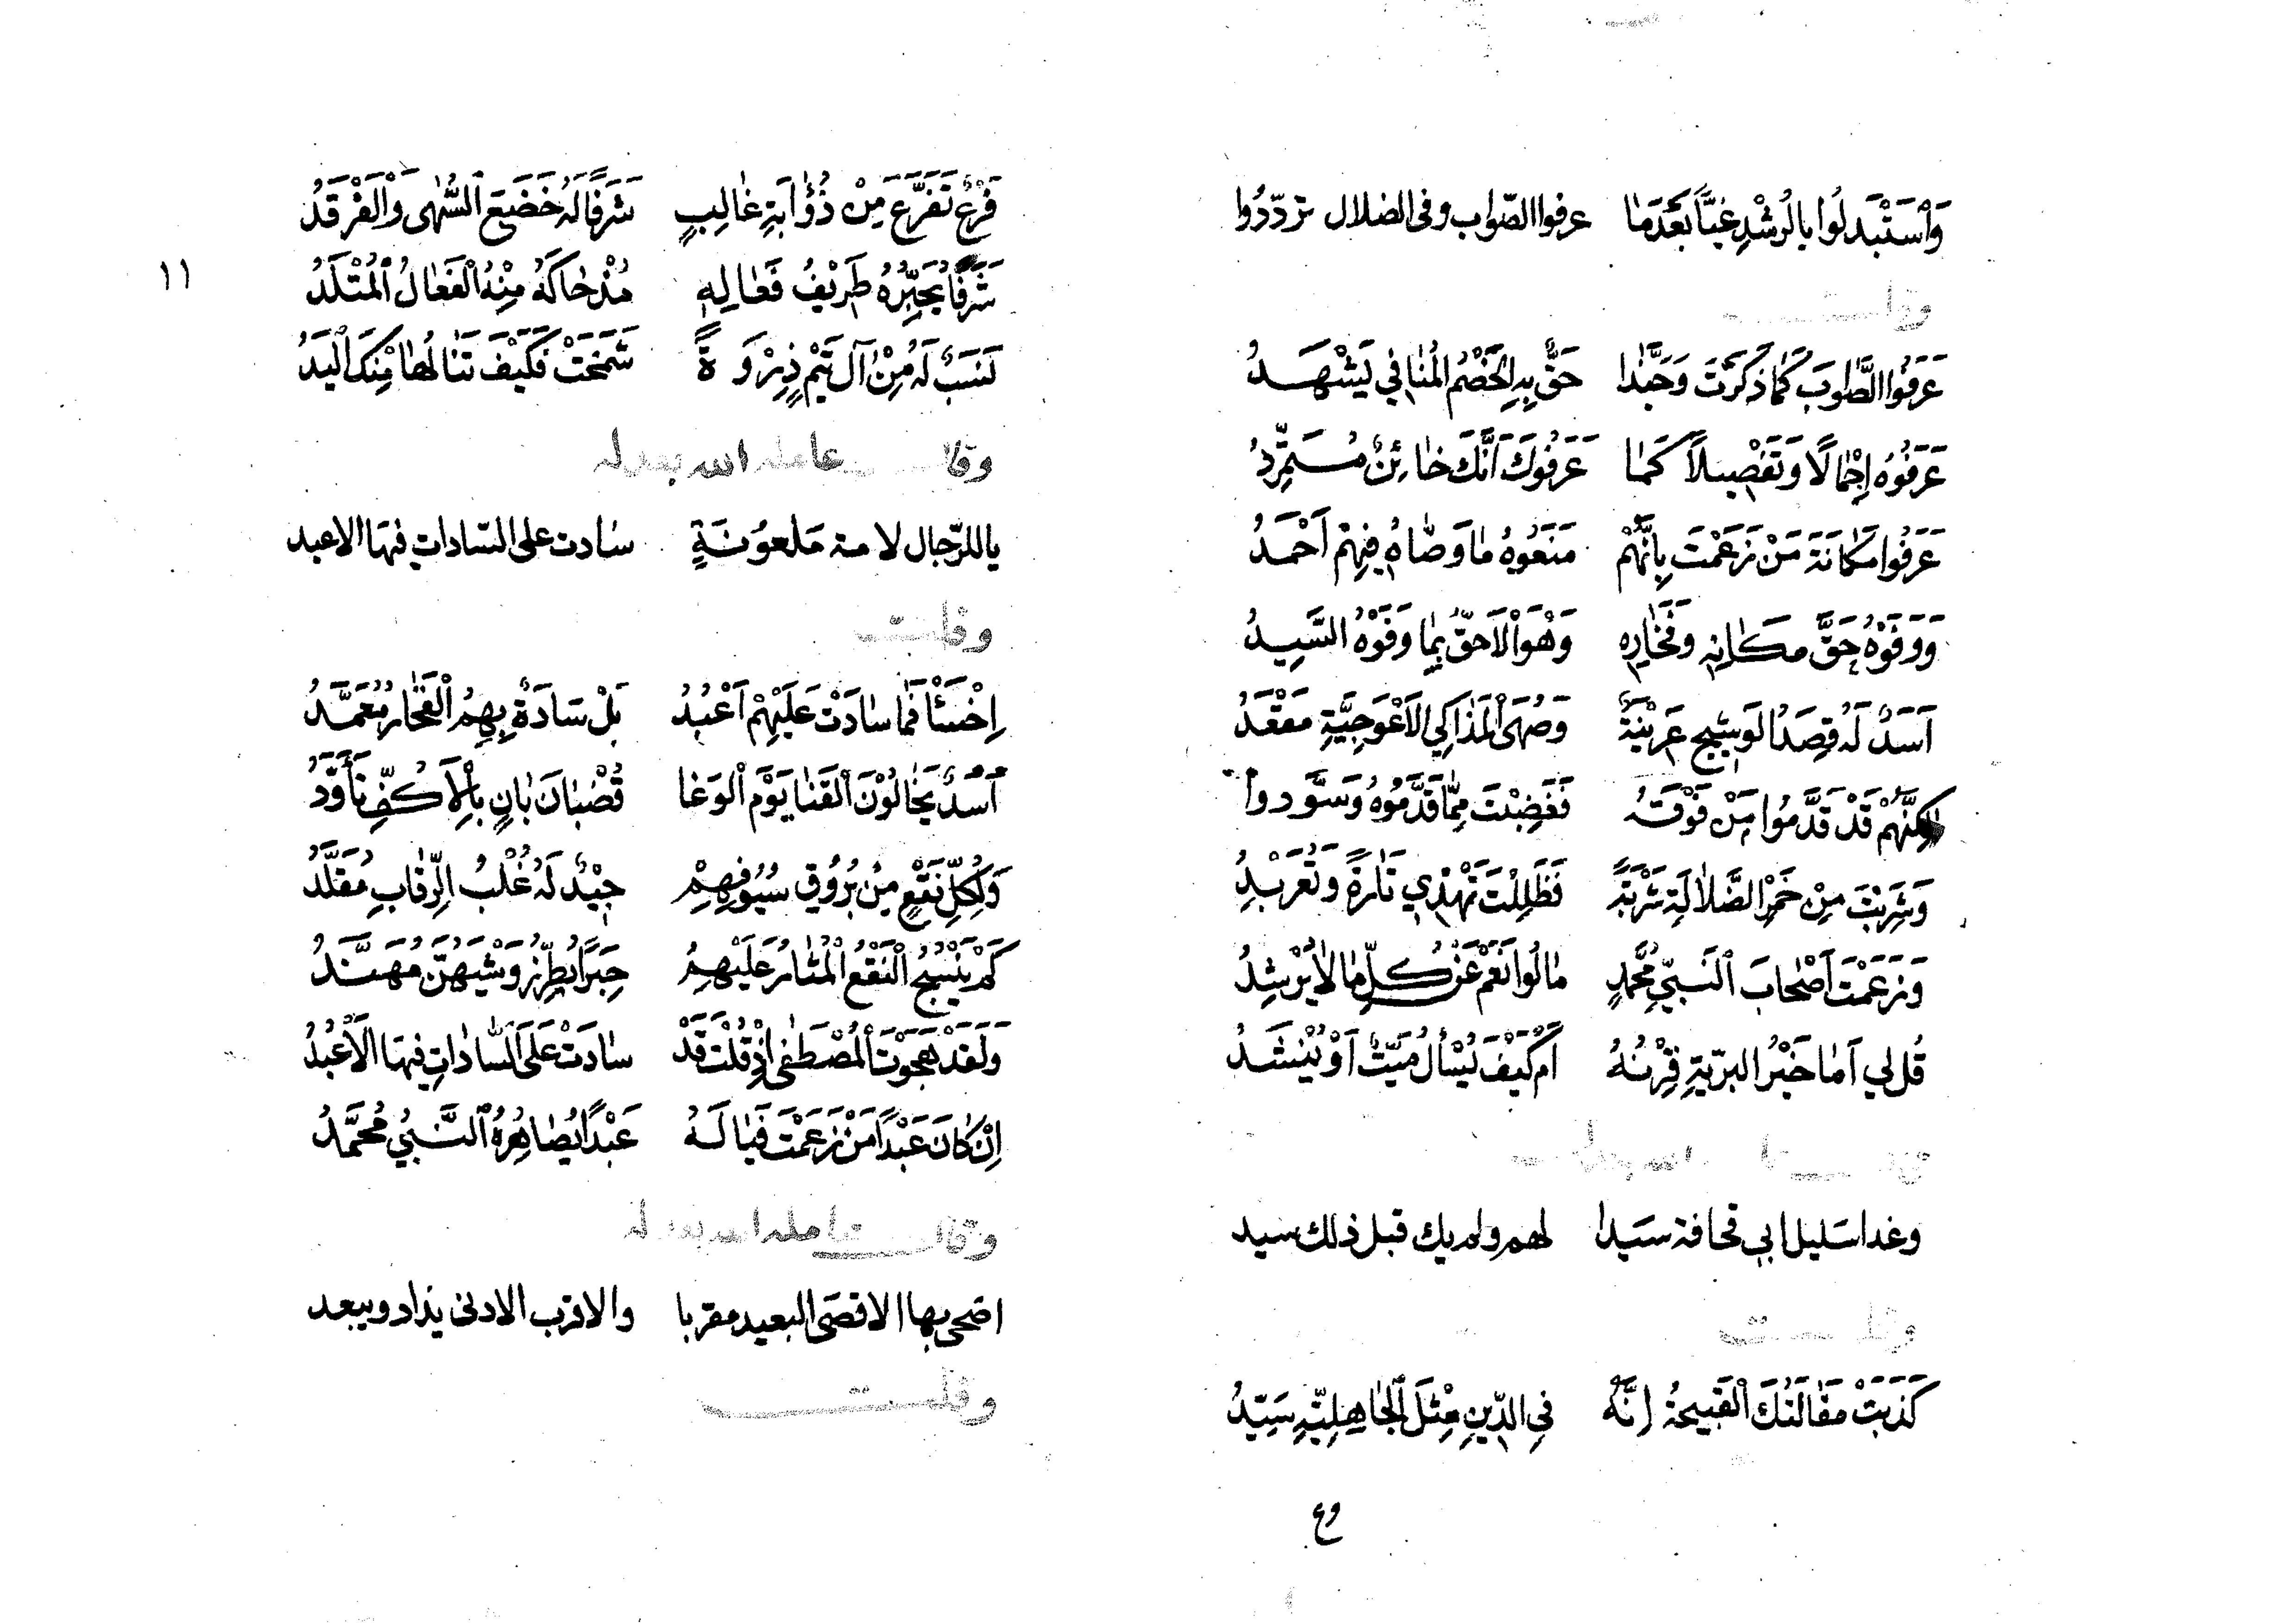 وَاسْتَبْدَلُوا بِالرُّشْدِ غَيًّا بَعْدَمَا عرفوا الصّواب وفى الضلال تردّدُوا
وقلت
عَرَفُوا الصَّوابَ كَمَا ذَكَرْتَ وَحَبَّذَا حَقٌّ بِهِ الْخَصْمُ الْمُنَافِي يَشْهَدُ
عَرَفُوهُ اِجْمَالًا وَتَفْصِيلاً كَمَا عَرَفُوكَ اَنَّكَ خَائِنٌ مُسْتَمَرِّدُ
عَرَفُوا مَكَانَةَ مَنْ زَعَمْتَ بِاَنَّهُمْ مَنَعُوهُ مَا وَصَّاهُ فِيهِمْ اَحْمَدُ
وَوَفَوْهُ حَقَّ مَكَانِهِ وَفَخَارِهِ وَهُوَ الْاَحَقُّ بِمَا وَفَوْهُ السَّيِّدُ
اَسَدٌ لَهُ قِصَدُ الوَشِيجِ عَرِيْنَةٌ وَصُهَى الْمَذَاكِي الْاَعْوَجِيَّةِ مَقْعَدُ
لٰكِنَّهُمْ قَدْ قَدَّمُوا مَنْ فَوْقَهُ فَغَضِبْتَ مِمَّا قَدَّمُوهُ وَسَوَّدوا
وَشَرِبْتَ مِنْ خَمْرِ الضَّلالَةِ شَرْبَةً فَظَلِلْتَ تَهْذِي تَارَةً وَتُعَرْبِدُ
وَزَعَمْتَ اَصْحَابَ النَّبِيِّ مُحَمَّدٍ مَالُوا نَعَمْ عَنْ كُلِّ مَا لَا يُرْشِدُ
قُل لِي اَمَا خَيْرُ البَرِيَّةِ قِرْنُهُ اَمْ كَيْفَ يُسْأَلُ مَيِّتٌ اَوْ يُنْشَدُ
وغدا سَليل ابي قحافة سَيدا لهم ولم يك قبل ذلك سيد
وقلت
كَذَبَتْ مَقَالَتُكَ الْقَبِيحَةُ اِنَّهُ فِي الدِّينِ مِثْلَ الْجَاهِلِيَّةِ سَيِّدُ
فَرْعٌ تَفَرَّعَ مِنْ ذُؤَابَةِ غَالِبٍ شَرَفًا لَهُ خَضَعَ السُّهَى وَالْفَرْقَدُ
١١
شَرَفًا يُحَبِّرُهُ طَرِيْفُ فَعَالِهِ مُذْ حَاكَهُ مِنْهُ الْفَعَالُ الْمُتْلَدُ
نَسَبٌ لَهُ مِنْ آلِ تَيْمٍ ذِرْوَةً شَمَخَتْ فَكَيْفَ تَنَالُهَا مِنْكَ الْيَدُ
وقال عامله الله بعدله
يا للرّجال لامة مَلعوُنَةٍ سادت على السّاداتِ فيهَا الاعبد
وقلت
اِخْسَأْ فَمَا سَادَتْ عَلَيْهِمْ اَعْبُدُ بَلْ سَادَةٌ بِهِمُ الْفَخَارُ مُعَمَّدُ
اُسُدٌ يَخَالُوْنَ الْقَنَا يَوْمَ الْوَغَا قُضْبَانَ بَانٍ بِالْاَكُفِّ تَأَوَّدُ
وَلِكُلِّ نَقْعٍ مِنْ بُرُوْقِ سُيُوْفِهِمْ جِيْدٌ لَهُ غُلْبُ الرِّقَابِ مُقَلَّدُ
كَمْ يَنْسِجُ النَّقْعُ الْمُثَارُ عَلَيْهِمُ حِبَرًا يُطَرِّزُ وَشْيَهُنَّ مُهَنَّدُ
وَلَقَدْ هَجَوْتَ الْمُصْطَفَى اِذْ قُلْتَ قَدْ سَادَتْ عَلَى السَّادَاتِ فِيهَا الْاَعْبُدُ
اِنْ كَانَ عَبْدًا مَنْ زَعَمْتَ فَيَا لَهُ عَبْدًا يُصَاهِرُهُ النَّبِيُّ مُحَمَّدُ
وقال عامله الله بعدله
اضحى بها الاقصَى البعيد مقربا والاقرب الادنى يذاد ويبعد
وقلت